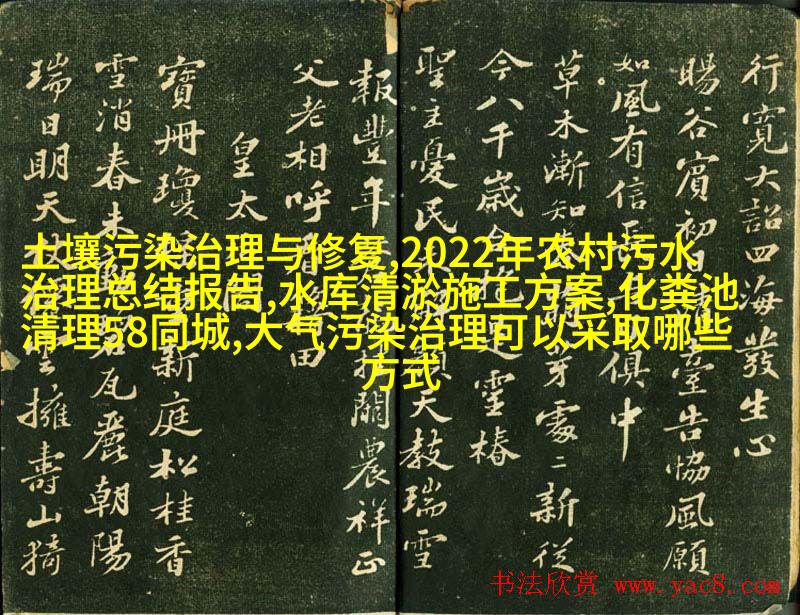 行寬大詔四海發生心
暘谷賓初日清臺告協風願
如風有信長 日俱中
草木漸知 萌芽處〻新從
今八千歲合抱是靈椿
聖主憂民 天教瑞雪
報豐年 關農祥正
父老相呼看 田
皇太
寶冊瓊 新庭松桂香
雪消春未 碧瓦麗朝陽
瑞日明天仗 擁壽山猗
土壤污染治理与修复,2022年农村污水
治理总结报告,水库清淤施工方案,化粪池
清理58同城,大气污染治理可以采取哪些
方式
书法欣赏 www.yac8.com